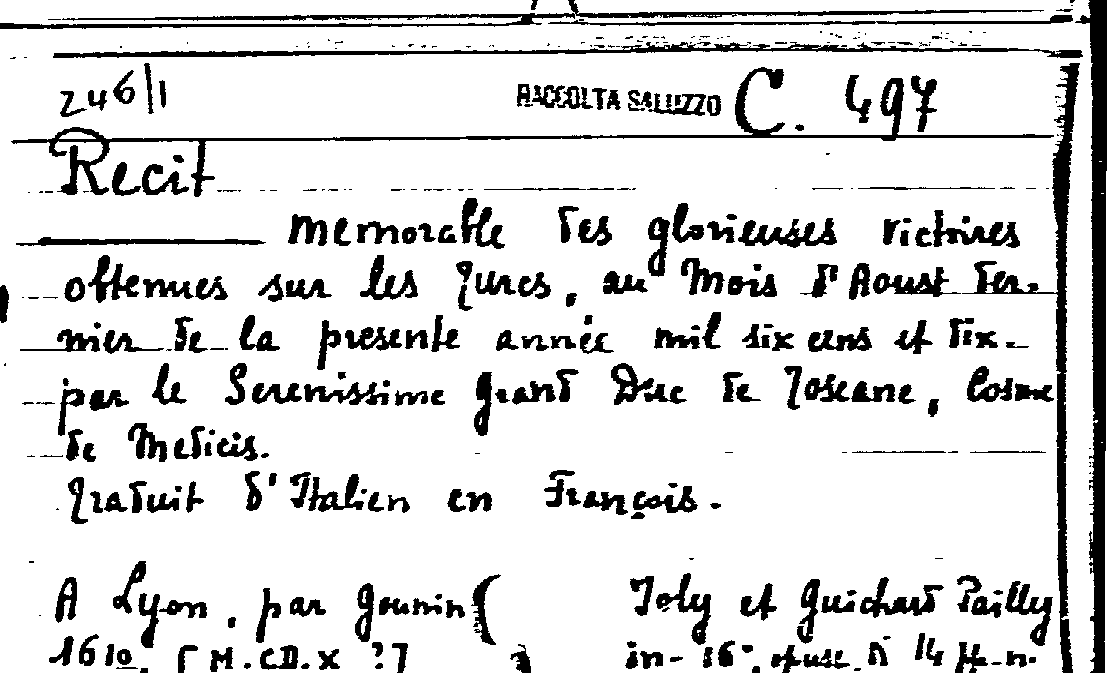 246/1 RACCOLTA SALUZZO C. 497
Recit
memorable des glorieuses victoires
obtenues sur les Turcs, au Mois d'Aoust der-
nier de la presente année mil six cens et dix.
par le Serenissime grand Duc de Toscane, Cosme
de Medicis.
Traduit d'Italien en François.
A Lyon, par Jounin ( Joly et Guichard Pailly
1610. [M.CD.X ?] in-16°, opusc. di 14 pp.